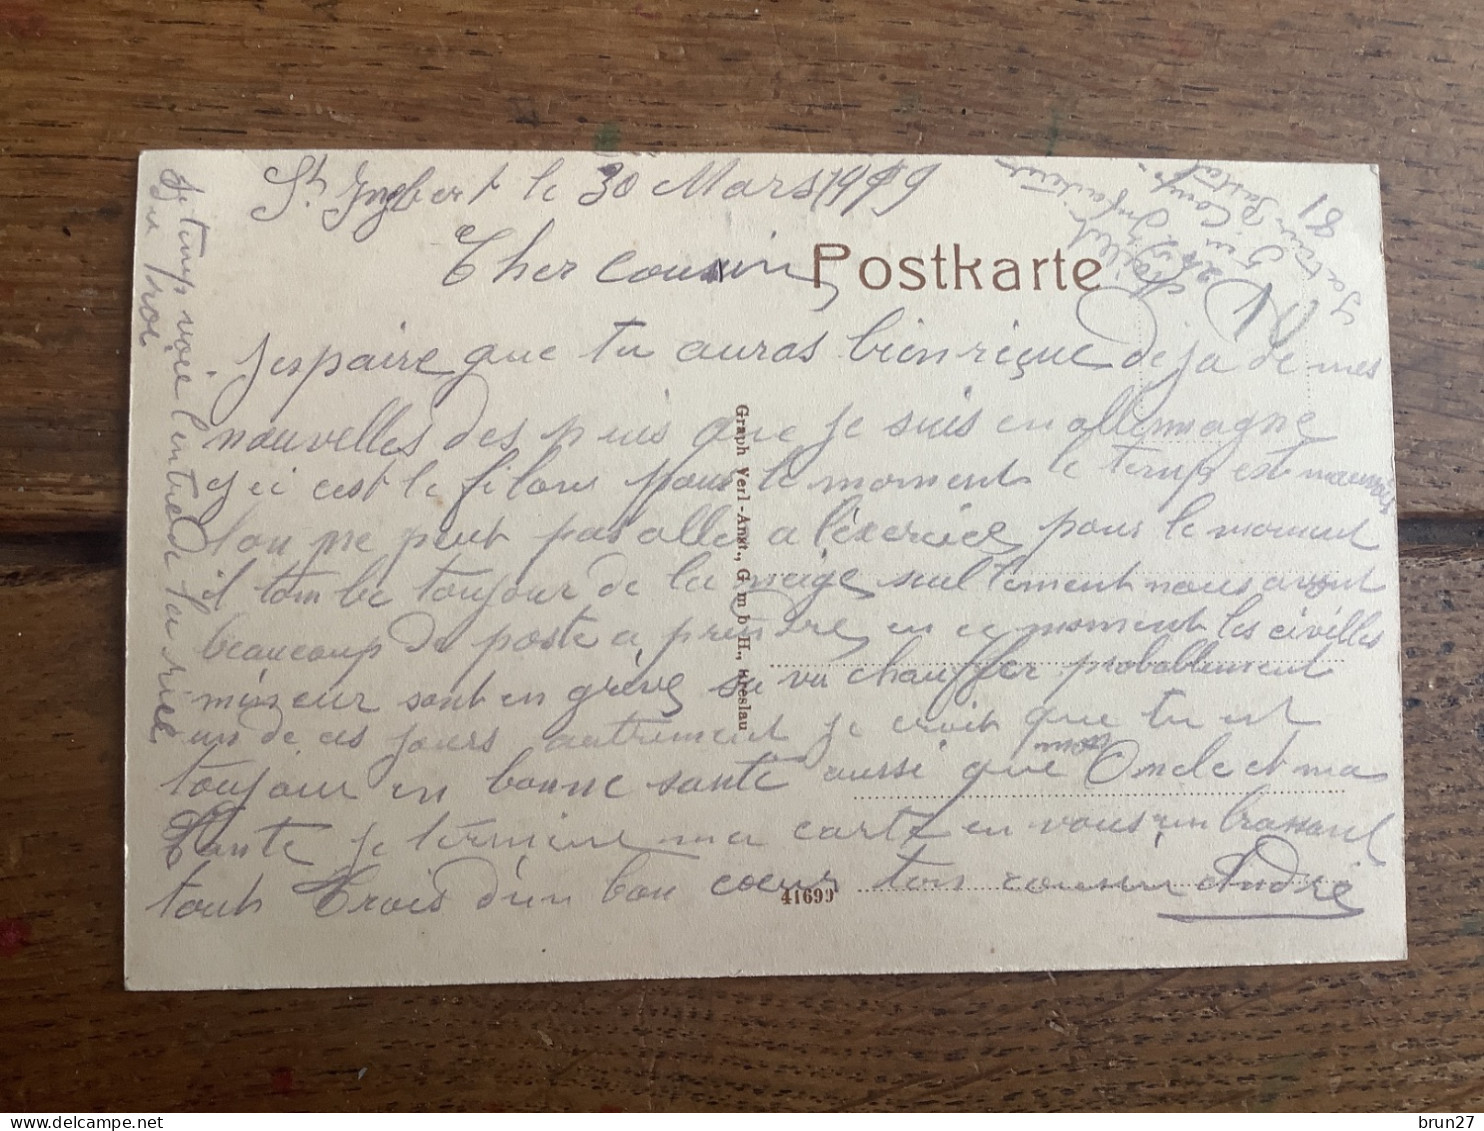 St Jngbert le 30 Mars 1919
Cher cousin,
Postkarte
Jespaire que tu auras bien rèçue deja de mes
nouvelles des puis que je suis en allemagne
Jci cest le filons pour le moment le temps est mauvais
lon ne peut pas aller a léxercice pour le moment
il tombe toujour de la neige seultement nous avont
beaucoup de poste a prendre, en ce moment les civilles
mineur sont en grève sa va chauffer probablement
un de ces jours autrement je croit que tu est
toujour en bonne santé aussi que mon Oncle et ma
Tante je termine ma carte en vous embrassant
tout Trois d'un bon coeur ton cousin André
Je temp voie l'entrée de la rue
du roi
Secteur Postal
81
Graph Verl-Anst., G m b H., Breslau
41699
brun27